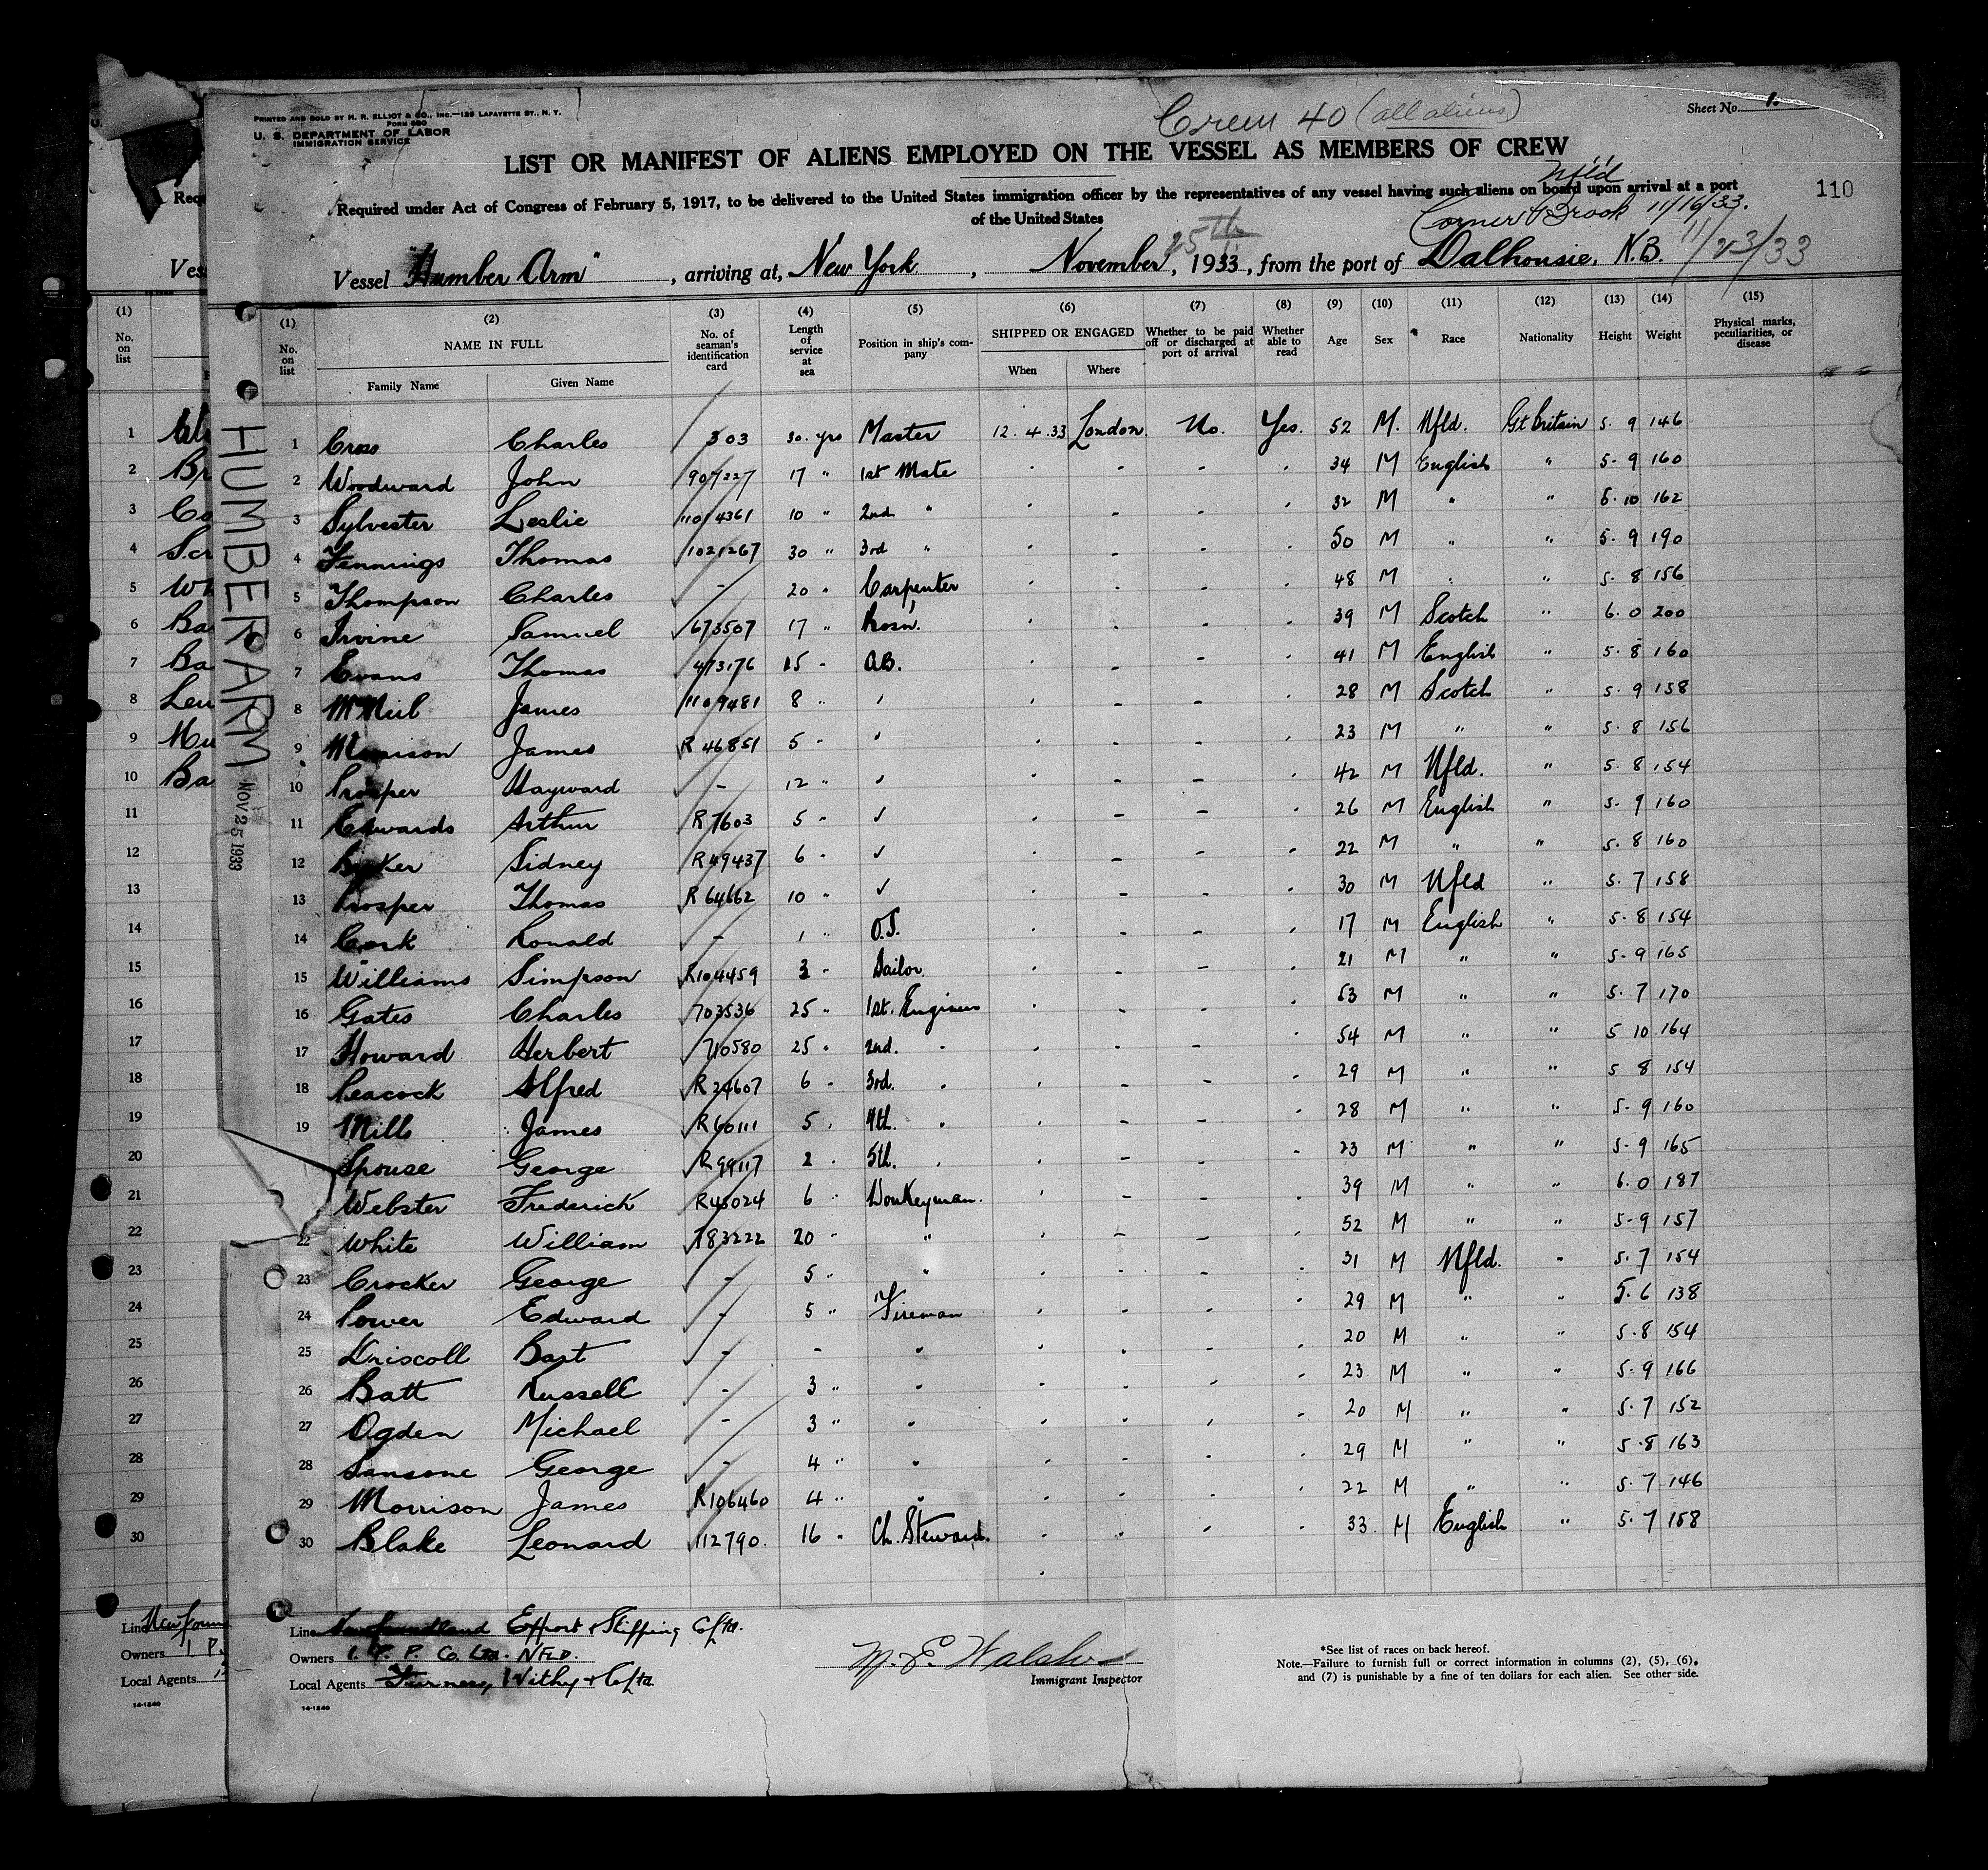 Crew 40 (all aliens)
Sheet No. 1.
PRINTED AND SOLD BY H. R. ELLIOT & CO., INC.—129 LAFAYETTE ST., N. Y.
FORM 680
U. S. DEPARTMENT OF LABOR
IMMIGRATION SERVICE
LIST OR MANIFEST OF ALIENS EMPLOYED ON THE VESSEL AS MEMBERS OF CREW
Required under Act of Congress of February 5, 1917, to be delivered to the United States immigration officer by the representatives of any vessel having such aliens on board upon arrival at a port
of the United States
110
Nfld
Corner Brook 11/16/33.
Vessel "Humber Arm", arriving at, New York, November 25th, 1933, from the port of Dalhousie, N.B. 11/23/33
(1) (2) (3) (4) (5) (6) (7) (8) (9) (10) (11) (12) (13) (14) (15)
No. on list NAME IN FULL No. of seaman's identification card Length of service at sea Position in ship's company SHIPPED OR ENGAGED Whether to be paid off or discharged at port of arrival Whether able to read Age Sex Race Nationality Height Weight Physical marks, peculiarities, or disease
Family Name Given Name When Where
1 Cross Charles 303 30 yrs Master 12.4.33 London. No. Yes. 52 M. Nfld. Gt Britain 5.9 146
2 Woodward John 907227 17 " 1st Mate 34 M English " 5.9 160
3 Sylvester Leslie 1104361 10 " 2nd " 32 M " " 5.10 162
4 Jennings Thomas 1021267 30 " 3rd " 50 M " " 5.9 190
5 Thompson Charles - 20 " Carpenter 48 M " " 5.8 156
6 Irvine Samuel 673507 17 " Bosn. 39 M Scotch " 6.0 200
7 Evans Thomas 473176 15 " A.B. 41 M English " 5.8 160
8 McNeil James 1109481 8 " " 28 M Scotch " 5.9 158
9 James R 46851 5 " " 23 M " " 5.8 156
10 Prosper Hayward - 12 " " 42 M Nfld. " 5.8 154
11 Edwards Arthur R 7603 5 " " 26 M English " 5.9 160
12 Sidney R 49437 6 " " 22 M " " 5.8 160
13 Prosper Thomas R 64662 10 " " 30 M Nfld " 5.7 158
14 Cork Ronald - 1 " O.S. 17 M English " 5.8 154
15 Williams Simpson R104459 3 " Sailor. 21 M " " 5.9 165
16 Gates Charles 703536 25 " 1st. Engineer 53 M " " 5.7 170
17 Howard Herbert 710580 25 " 2nd. " 54 M " " 5 10 164
18 Peacock Alfred R 24607 6 " 3rd. " 29 M " " 5 8 154
19 Mills James R60111 5 " 4th. " 28 M " " 5.9 160
20 Spouse George R 99117 2 " 5th. " 23 M " " 5.9 165
21 Webster Frederick R45024 6 " Donkeyman. 39 M " " 6.0 187
22 White William 783222 20 " " 52 M " " 5.9 157
23 Crocker George - 5 " " 31 M Nfld. " 5.7 154
24 Power Edward - 5 " Fireman 29 M " " 5.6 138
25 Driscoll Bart - - " 20 M " " 5.8 154
26 Batt Russell - 3 " " 23 M " " 5.9 166
27 Ogden Michael - 3 " " 20 M " " 5.7 152
28 Sansone George - 4 " " 29 M " " 5.8 163
29 Morrison James R106460 4 " " 22 M " " 5.7 146
30 Blake Leonard 112790. 16 " Ch. Steward. 33. M English " 5.7 158
Line Newfoundland Export & Shipping Co Ltd.
Owners I. P. P. Co. Ltd. NFLD.
Local Agents Furness, Withy & Co Ltd
14-1240
M. E. Walsh
Immigrant Inspector
*See list of races on back hereof.
Note.—Failure to furnish full or correct information in columns (2), (5), (6), and (7) is punishable by a fine of ten dollars for each alien. See other side.
HUMBER ARM NOV 25 1933
(1)
No. on list
1
2
3
4
5
6
7
8
9
10
11
12
13
14
15
16
17
18
19
20
21
22
23
24
25
26
27
28
29
30
Line Newfoun
Owners I. P.
Local Agents
14-1240